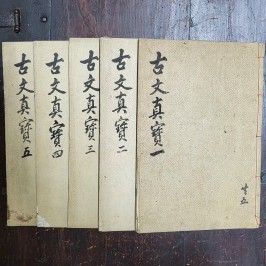 古文真寶 一
共五
古文真寶 二
古文真寶 三
古文真寶 四
古文真寶 五